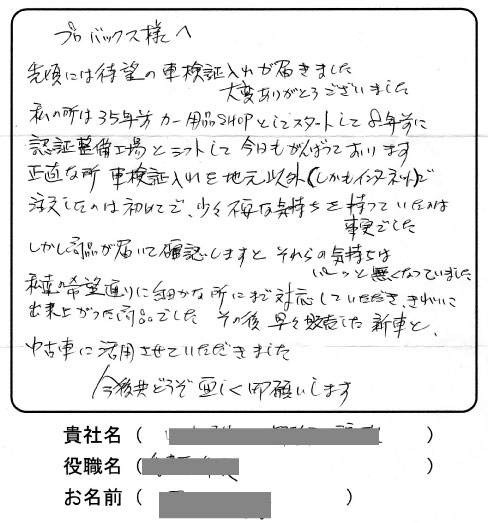 プロバックス様へ
先頃には待望の車検証入れが届きました
大変ありがとうございました
私の所は35年前カー用品SHOPとしてスタートして8年前に
認証整備工場とシフトして今日もがんばっております
正直な所 車検証入れを地元以外(しかもインターネット)で
注文したのは初めてで、少々不安な気持ちを持っていたのは
事実でした
しかし商品が届いて確認しますとそれらの気持ちは
無くなっていました
希望通りに細かな所にまで対応していただき、きれいに
出来上がった商品でした その後 早々販売した新車と、
中古車に活用させていただきました
今後共どうぞ宜しく御願いします
貴社名( )
役職名( )
お名前( )